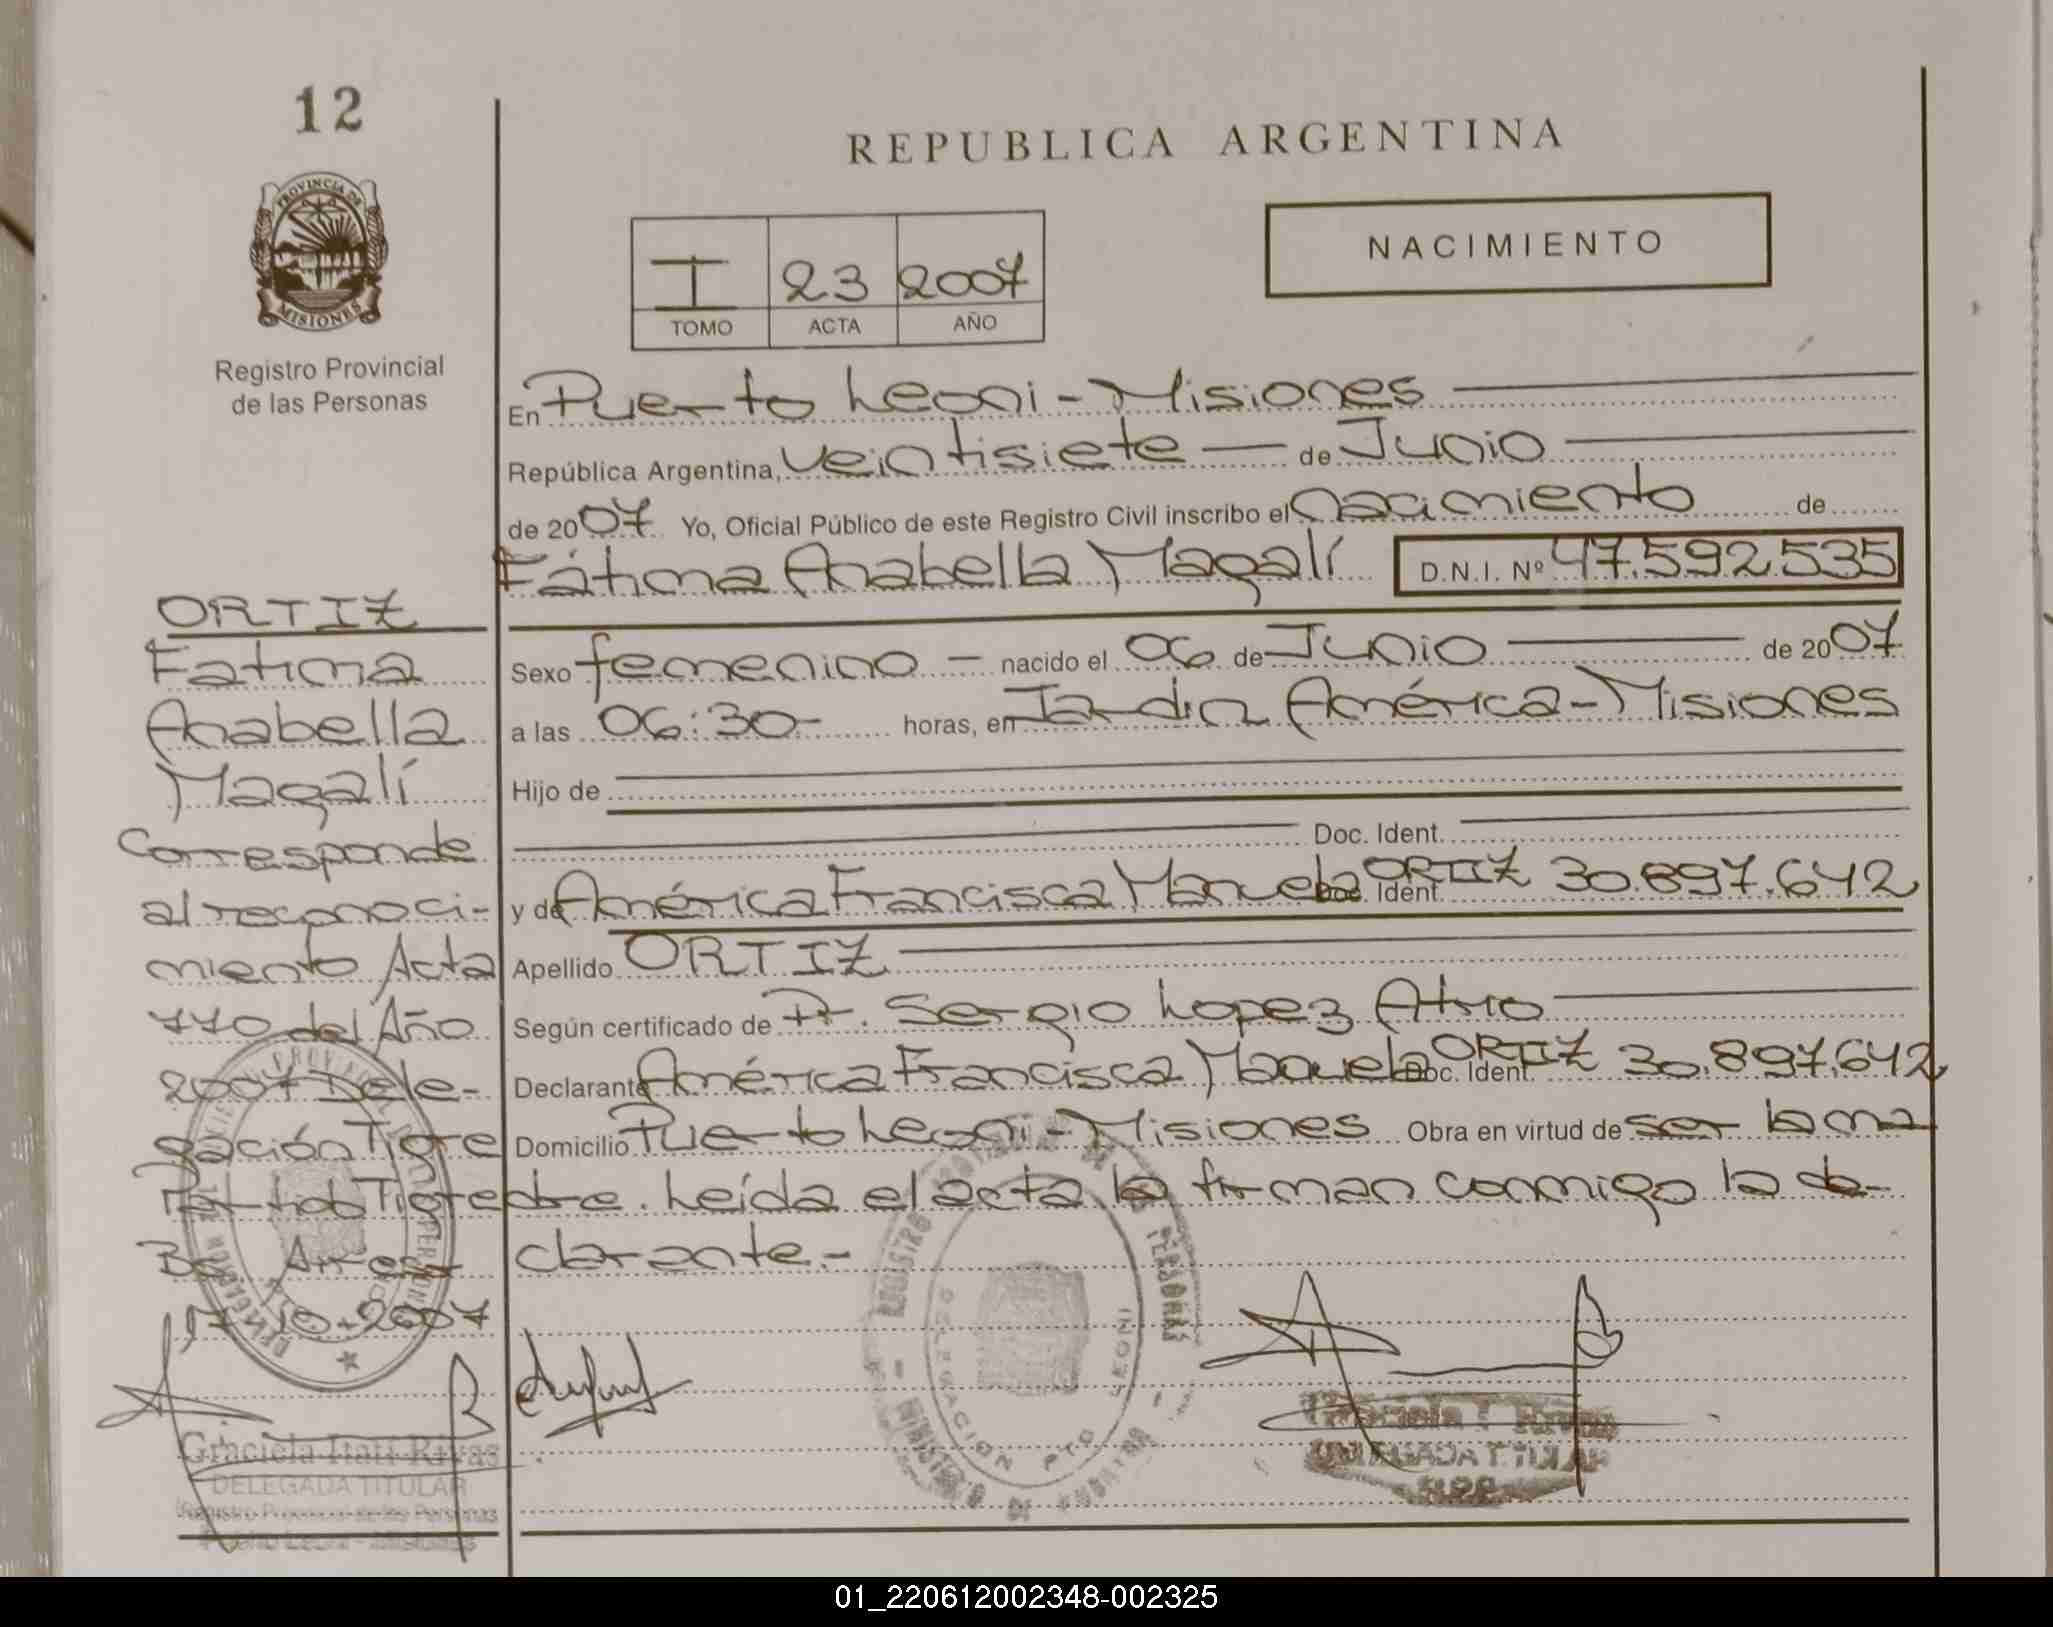 12
PROVINCIA DE
MISIONES
Registro Provincial
de las Personas
REPUBLICA ARGENTINA
NACIMIENTO
I 23 2007
TOMO ACTA AÑO
En Puerto Leoni - Misiones
República Argentina, veintisiete de Junio
de 2007 Yo, Oficial Público de este Registro Civil inscribo el nacimiento de
Fátima Anabella Magalí D.N.I. Nº 47.592.535
Sexo femenino - nacido el 06 de Junio de 2007
a las 06:30- horas, en Jardin América - Misiones
Hijo de
Doc. Ident.
y de América Francisca Manuela ORTIZ Doc. Ident. 30.897.642
Apellido ORTIZ
Según certificado de Dr. Sergio Lopez Atrio
Declarante América Francisca Manuela ORTIZ Doc. Ident. 30.897.642
Domicilio Puerto Leoni - Misiones Obra en virtud de ser la ma
dre. Leída el acta la firman conmigo la de-
clarante.-
ORTIZ
Fatima
Anabella
Magalí
Corresponde
al reconoci-
miento Acta
770 del Año
2007 Dele-
gación Tigre
Partido Tigre
Bs. Aires
17-10-2007
Graciela Itatí Rivas
DELEGADA TITULAR
Registro Provincial de las Personas
Puerto Leoni - Misiones
REGISTRO PROVINCIAL DE LAS PERSONAS
DELEGACION PTO LEONI
Graciela I Rivas
DELEGADA TITULAR
R.P.P.
01_220612002348-002325